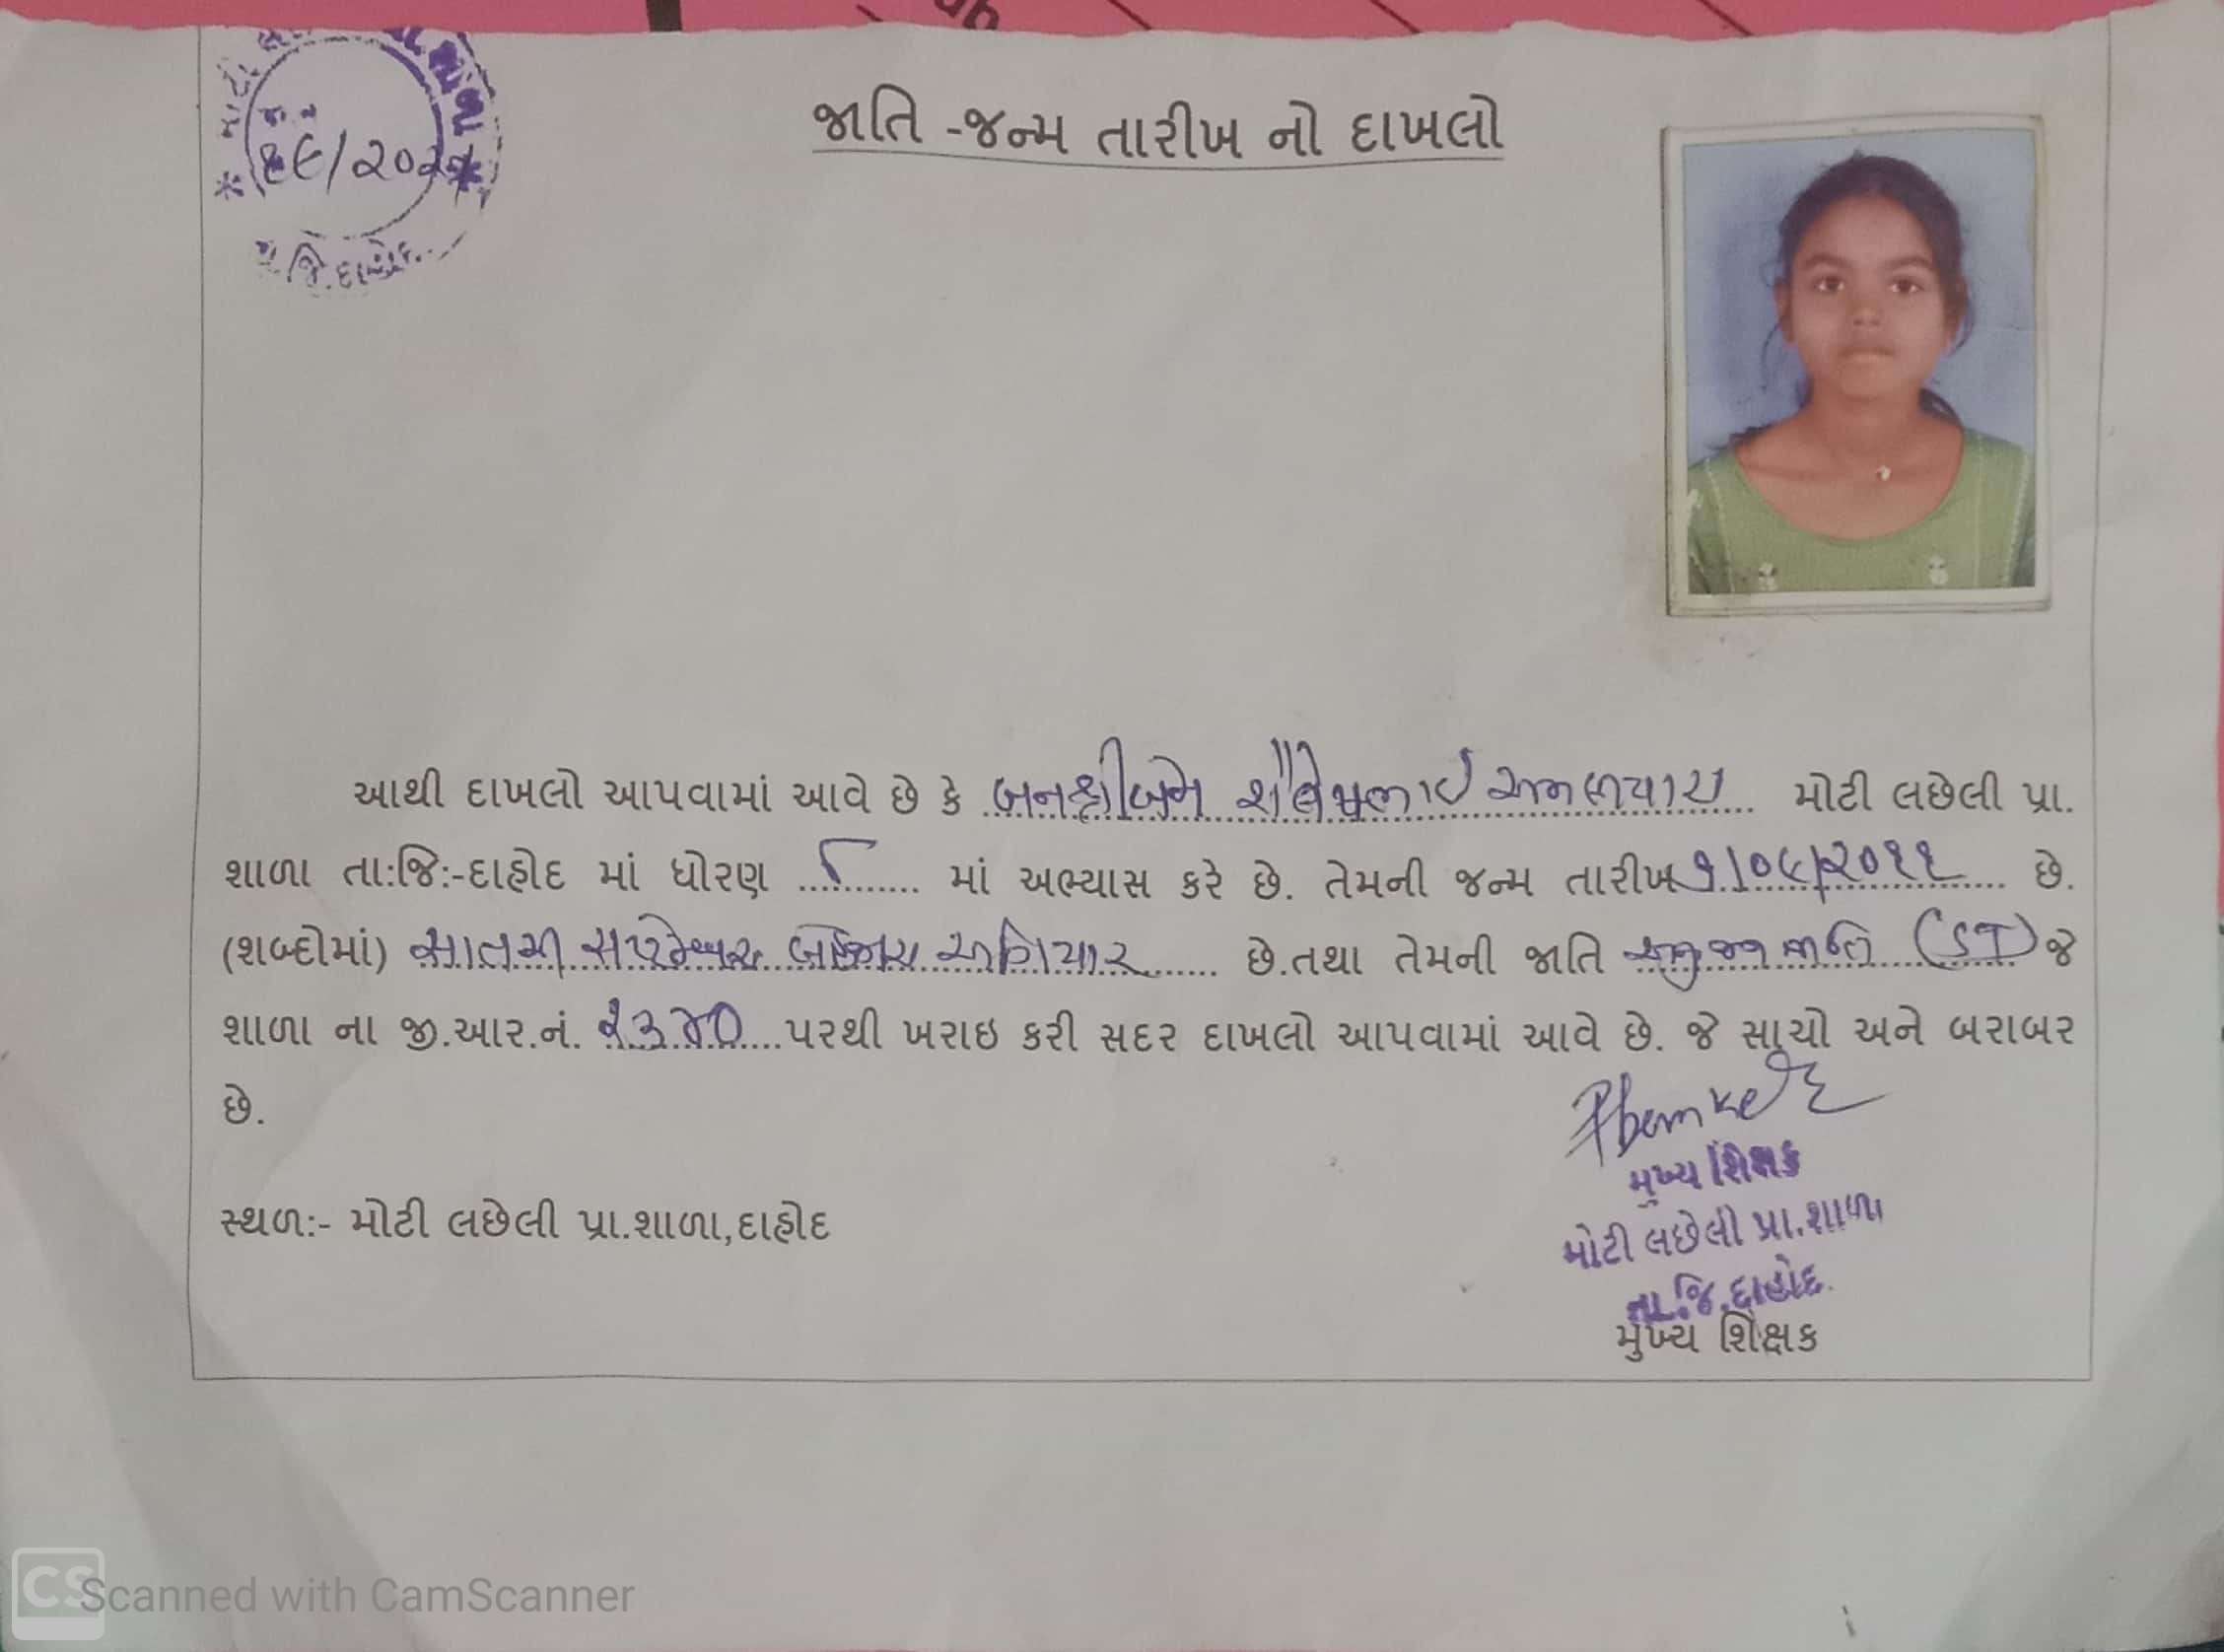 જાતિ -જન્મ તારીખ નો દાખલો
આથી દાખલો આપવામાં આવે છે કે શૈલેષભાઈ મોટી લછેલી પ્રા.
શાળા તા:જિ:-દાહોદ માં ધોરણ ૮ માં અભ્યાસ કરે છે. તેમની જન્મ તારીખ ૭/૦૯/૨૦૧૧ છે.
(શબ્દોમાં) સાતમી સપ્ટેમ્બર બે હજાર અગિયાર છે.તથા તેમની જાતિ અનુ જન જાતિ (ST) જે
શાળા ના જી.આર.નં. ૨૩૪૦ પરથી ખરાઇ કરી સદર દાખલો આપવામાં આવે છે. જે સાચો અને બરાબર
છે.
મુખ્ય શિક્ષક
સ્થળ:- મોટી લછેલી પ્રા.શાળા,દાહોદ
મોટી લછેલી પ્રા.શાળા
તા.જિ.દાહોદ.
મુખ્ય શિક્ષક
CS Scanned with CamScanner